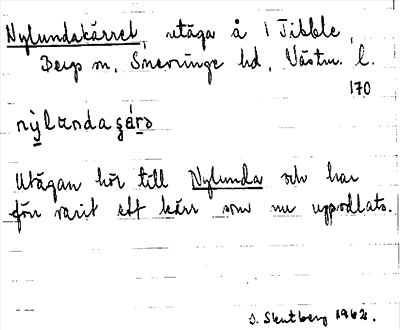 Nylundakärret, utäga å 1 Tibble,
Bergs sn, Snevringe hd, Västm. l.
170
nỳlundaɕárə
Utägan hör till Nylunda och har
förr varit ett kärr som nu uppodlats.
S. Stutberg 1962.